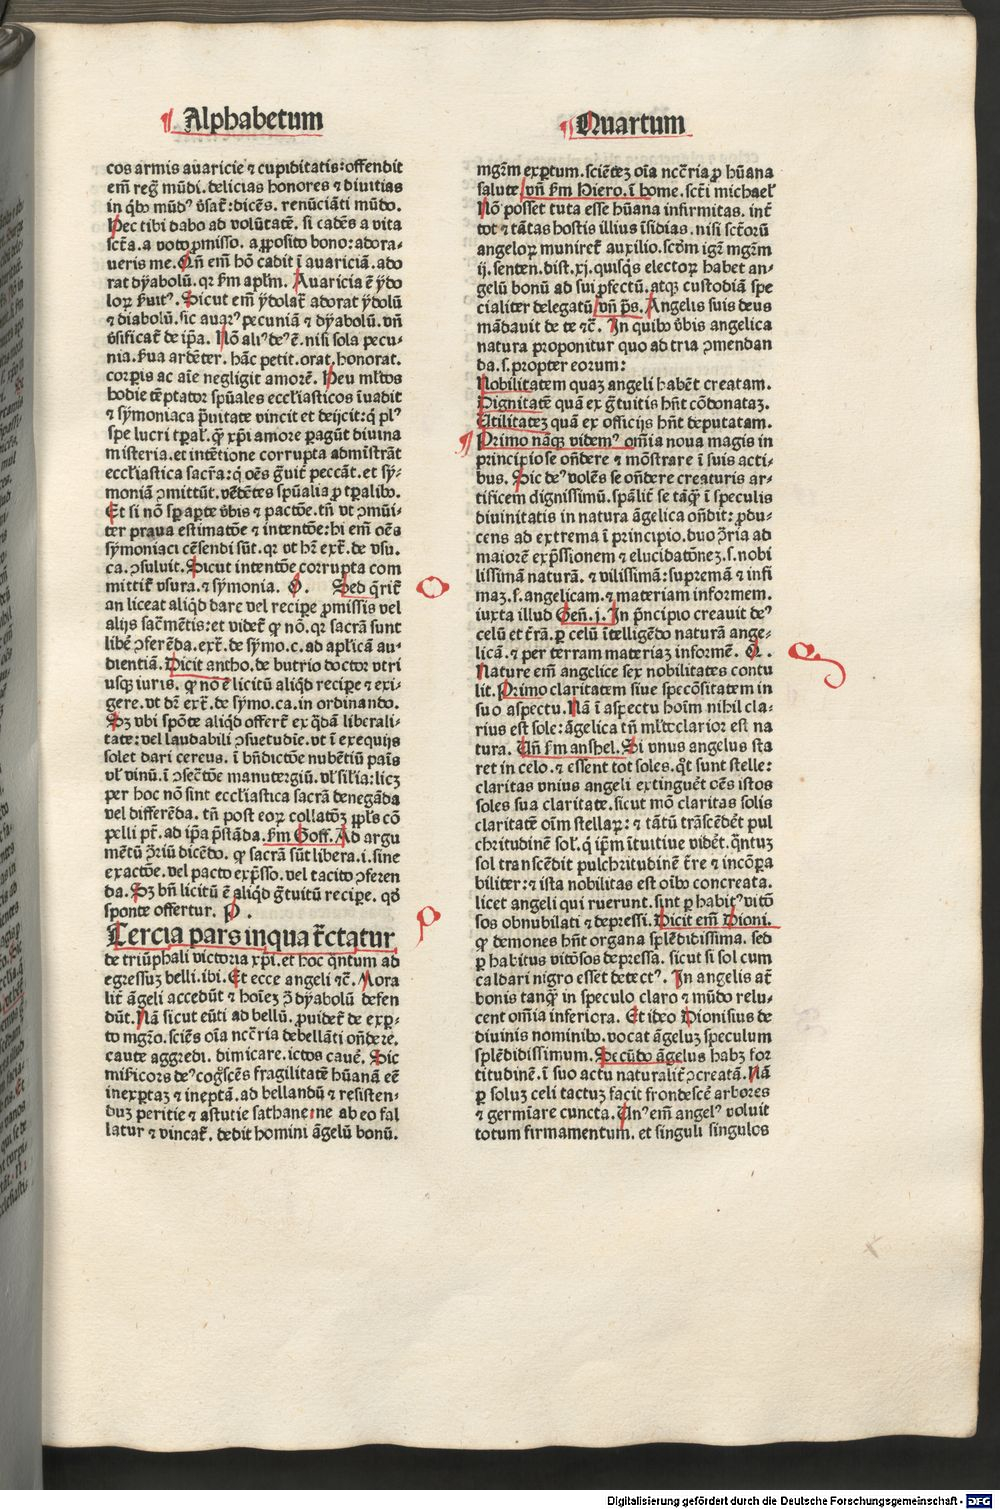 Alphabetum
Quartum
cos armis auaricie ⁊ cupiditatis: offendit
em̄ reg̃ mūdi. delicias honores ⁊ diuitias
in q̄bꝰ mūdꝰ v̓sat̄: dicēs. renūciāti mūdo.
Hec tibi dabo ad volūtatē. si cadēs a vita
sct̄a. a voto ꝓmisso. a ꝓposito bono: adora-
ueris me. Qn̄ em̄ hō cadit ī auariciā. ado
rat dyabolū. qꝛ ẜm apl̄m. Auaricia ē ydo
loꝝ ẜuitꝰ. Sicut em̄ ydolat̄ adorat ydolū
⁊ diabolū. sic auarꝰ pecuniā ⁊ dyabolū. vn̄
v̓sificat̄ de ip̄a. Nō aliꝰ deꝰ ē. nisi sola pecu-
nia. ẜua ardēter. hāc petit. orat. honorat.
corꝑis ac aīe negligit amorē. Heu ml̄tos
hodie tēptator sp̄uales eccl̄iasticos īuadit
⁊ symoniaca p̄uitate vincit et deijcit: q̄ plꝰ
spe lucri tꝑal̄. q̄ꝫ xp̄i amore ꝑagūt diuina
misteria. et intētione corrupta admīstrāt
eccl̄iastica sacr̄a: q̄ oēs g̃uit̄ peccāt. et sy-
moniā ꝯmittūt. vēdētes sp̄ualia ꝓ tꝑalibꝰ.
Et si nō sp̄ aperte v̓bis ⁊ pactōe. tn̄ vt ꝯmūi-
ter praua estimatōe ⁊ intentōe: hi em̄ oēs
symoniaci cēsendi sūt. qꝛ vt hr̄ ext̄. de vsu.
ca. ꝯsuluit. Sicut intentōe corrupta com
mittit̄ vsura. ⁊ symonia. O. Sed q̄rit̄
an liceat aliq̄d dare vel recipe ꝓmissis vel
alijs sacr̄mētis: et videt̄ ꝙ nō. qꝛ sacr̄a sunt
libē ꝯferēda. ext̄. de symo. c. ad apl̄icā au-
dientiā. Dicit antho. de butrio doctor vtri
usqꝫ iuris. ꝙ nō ē licitū aliq̄d recipe ⁊ exi-
gere. vt dr̄ ext̄. de symo. ca. in ordinando.
Sꝫ vbi spōte aliq̄d offert̄ ex q̄dā liberali-
tate: vel laudabili ꝯsuetudīe. vt ī exequijs
solet dari cereus. ī bn̄dictōe nubētiū pāis
vl̓ vinū. ī ꝯsecr̄tōe manutergiū. vl̓ sil̄ia: licꝫ
per hoc nō sint eccl̄iastica sacr̄a denegāda
vel differēda. tn̄ post eoꝝ collatōꝫ ꝓpl̄s cō
pelli pt̄. ad ip̄a p̄stāda. ẜm Goff. Ad argu
mētū ꝯ̄riū dicēdo. ꝙ sacr̄a sūt libera. i. sine
exactōe. vel pacto exp̄sso. vel tacito ꝯferen
da. Sꝫ bn̄ licitū ē aliq̄d g̃tuitū recipe. qd̄
sponte offertur. P.
Tercia pars inqua tr̄ctatur
de triūphali victoria xp̄i. et hoc q̄ntum ad
egressuꝫ belli. ibi. Et ecce angeli ⁊c̄. Mora
lit̄ āgeli accedūt ⁊ hoīeꝫ ꝯ̄ dyabolū defen
dūt. Nā sicut eūti ad bellū. ꝓuidet̄ de exꝑ-
to mgr̄o. sciēs oīa nccr̄ia debellāti on̄dere.
caute aggredi. dimicare. ictos cauē. Sic
misericors deꝰ cog̃scēs fragilitatē hūanā eē
inexꝑtaꝫ ⁊ ineptā. ad bellandū ⁊ resisten-
duꝫ peritie ⁊ astutie sathane: ne ab eo fal
latur ⁊ vincat̄. dedit homini āgelū bonū.
o
p
mgr̄m exꝑtum. sciētēꝫ oīa nccr̄ia ꝓ hūana
salute. vn̄ ẜm Hiero. ī home. sct̄i michael̓
Nō posset tuta esse hūana infirmitas. int̄
tot ⁊ tātas hostis illius īsidias. nisi sct̄orū
angeloꝝ muniret̄ auxilio. scd̄m igr̄ mgr̄m
ij. senten. dist. xj. quisq̄s electoꝝ habet an-
gelū bonū ad sui ꝓfectū. atqꝫ custodiā spe
cialiter delegatū. vn̄ p̄s. Angelis suis deus
mādauit de te ⁊c̄. In quibꝰ v̓bis angelica
natura proponitur quo ad tria ꝯmendan
da. s. propter eorum:
Nobilitatem quaꝫ angeli habēt creatam.
Dignitatē quā ex g̃tuitis hn̄t cōdonataꝫ.
Utilitateꝫ quā ex officijs hn̄t deputatam.
Primo nāqꝫ videmꝰ om̄ia noua magis in
principio se on̄dere ⁊ mōstrare ī suis acti-
bus. Sic deꝰ volēs se on̄dere creaturis ar-
tificem dignissimū. sp̄alit̄ se tāqꝫ̄ ī speculis
diuinitatis in natura āgelica on̄dit: ꝓdu-
cens ad extrema ī principio. duo ꝯ̄ria ad
maiorē exp̄ssionem ⁊ elucidatōneꝫ. s. nobi
lissimā naturā. ⁊ vilissimā: supremā ⁊ infi
maꝫ. s. angelicam. ⁊ materiam informem.
iuxta illud Gen̄. j. In p̄ncipio creauit deꝰ
celū et t̄rā. ꝑ celū ītelligēdo naturā ange-
licā. ⁊ per terram materiaꝫ informē. Q.
Nature em̄ angelice sex nobilitates contu
lit. Primo claritatem siue specōsitatem in
suo aspectu. Nā ī aspectu hoīm nihil cla-
rius est sole: āgelica tn̄ ml̄to clarior est na
tura. Un̄ ẜm anshel. Si vnus angelus sta
ret in celo. ⁊ essent tot soles. q̄t sunt stelle:
claritas vnius angeli extinguēt oēs istos
soles sua claritate. sicut mō claritas solis
claritatē oīm stellaꝝ: ⁊ tātū trāscēdēt pul
chritudinē sol̓. q̄ ip̄m ītuitiue vidēt. q̄ntuꝫ
sol transcēdit pulchritudinē t̄re ⁊ incōꝑa
biliter: ⁊ ista nobilitas est oībꝰ concreata.
licet angeli qui ruerunt. sint ꝑ habitꝰ vitiō
sos obnubilati ⁊ depressi. Dicit em̄ Dioni.
ꝙ demones hn̄t organa splēdidissima. sed
ꝑ habitus vitōsos depressa. sicut si sol cum
caldari nigro esset detectꝰ. In angelis at̄
bonis tanqꝫ̄ in speculo claro ⁊ mūdo relu-
cent om̄ia inferiora. Et ideo Dionisius de
diuinis nominibꝰ. vocat āgeluꝫ speculum
splēdidissimum. Secūdo āgelus habꝫ for
titudinē. ī suo actu naturalit̄ ꝯcreatā. Nā
ꝑ soluꝫ celi tactuꝫ facit frondescē arbores
⁊ germīare cuncta. Unꝰ em̄ angelꝰ voluit
totum firmamentum. et singuli singulos
q
Digitalisierung gefördert durch die Deutsche Forschungsgemeinschaft - DFG